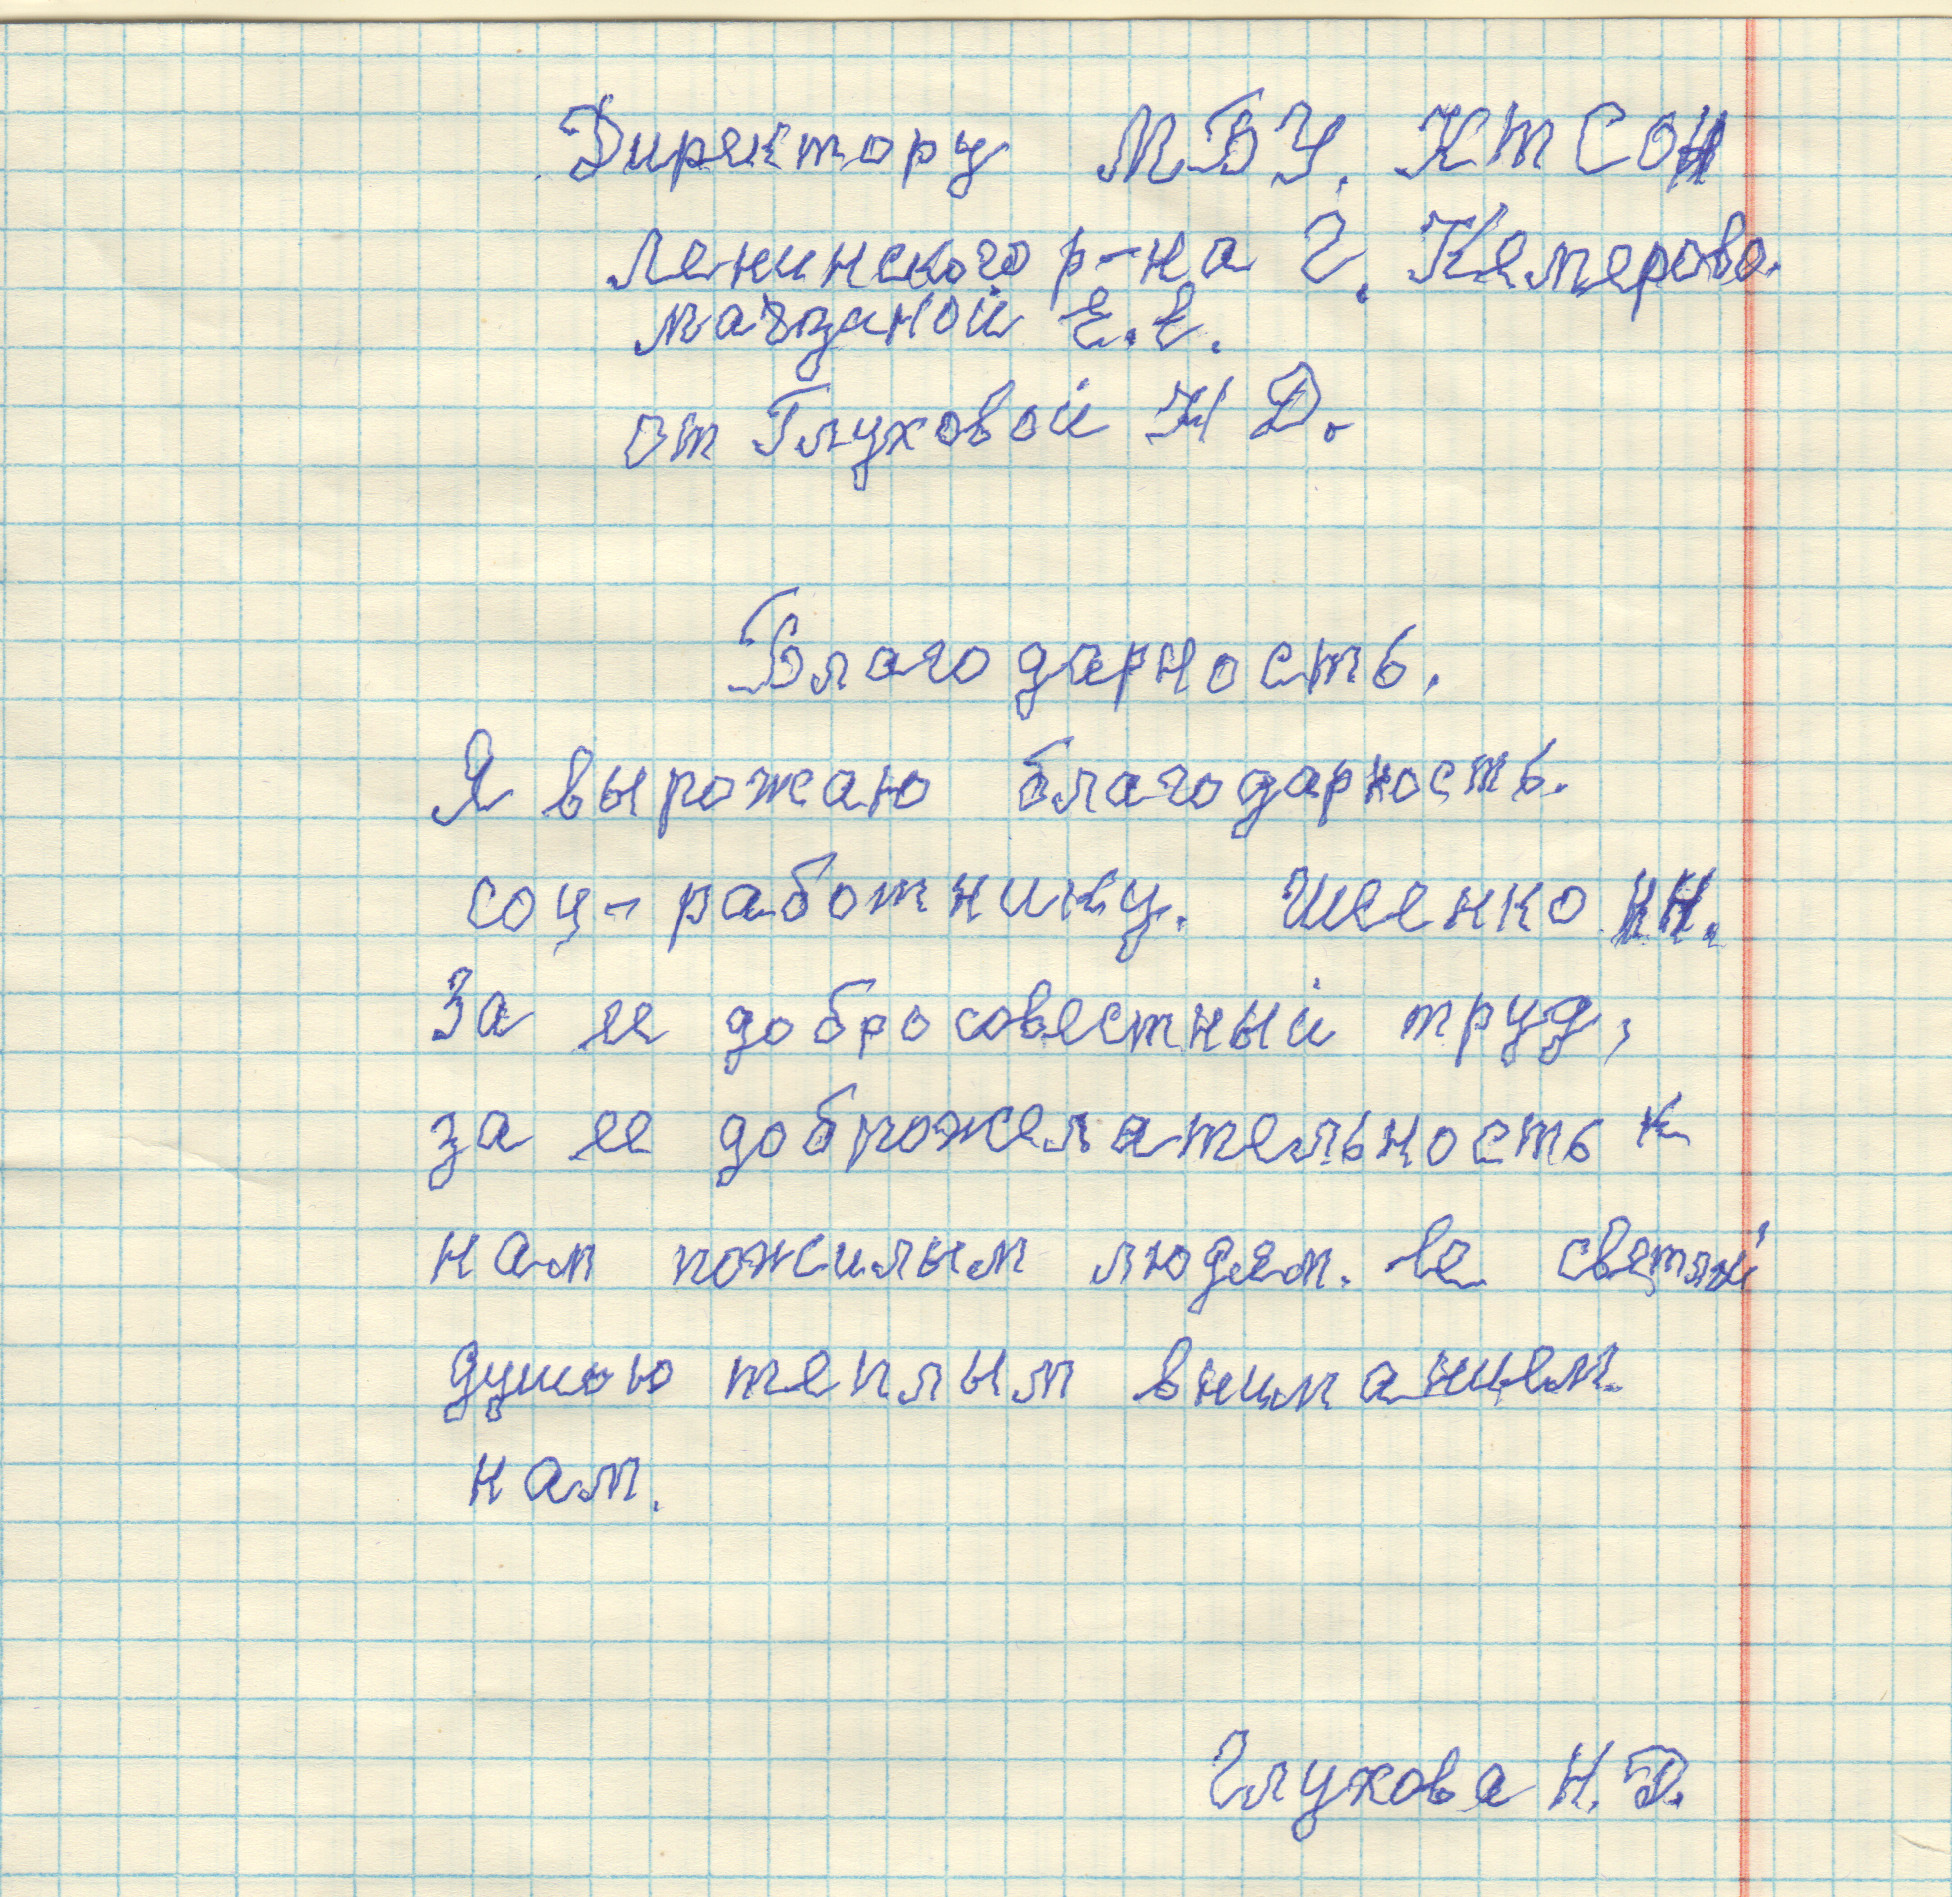 Директору МБУ. КТСОН
Ленинского р-на г. Кемерово.
Е.В.
от Глуховой Н Д.
Благодарность.
Я вырожаю благодарность.
соц-работнику. Н.
За ее добросовестный труд,
за ее доброжелательность к
нам пожилым людям. Ве светлой
душою теплым вниманием
нам.
Глухова Н. Д.